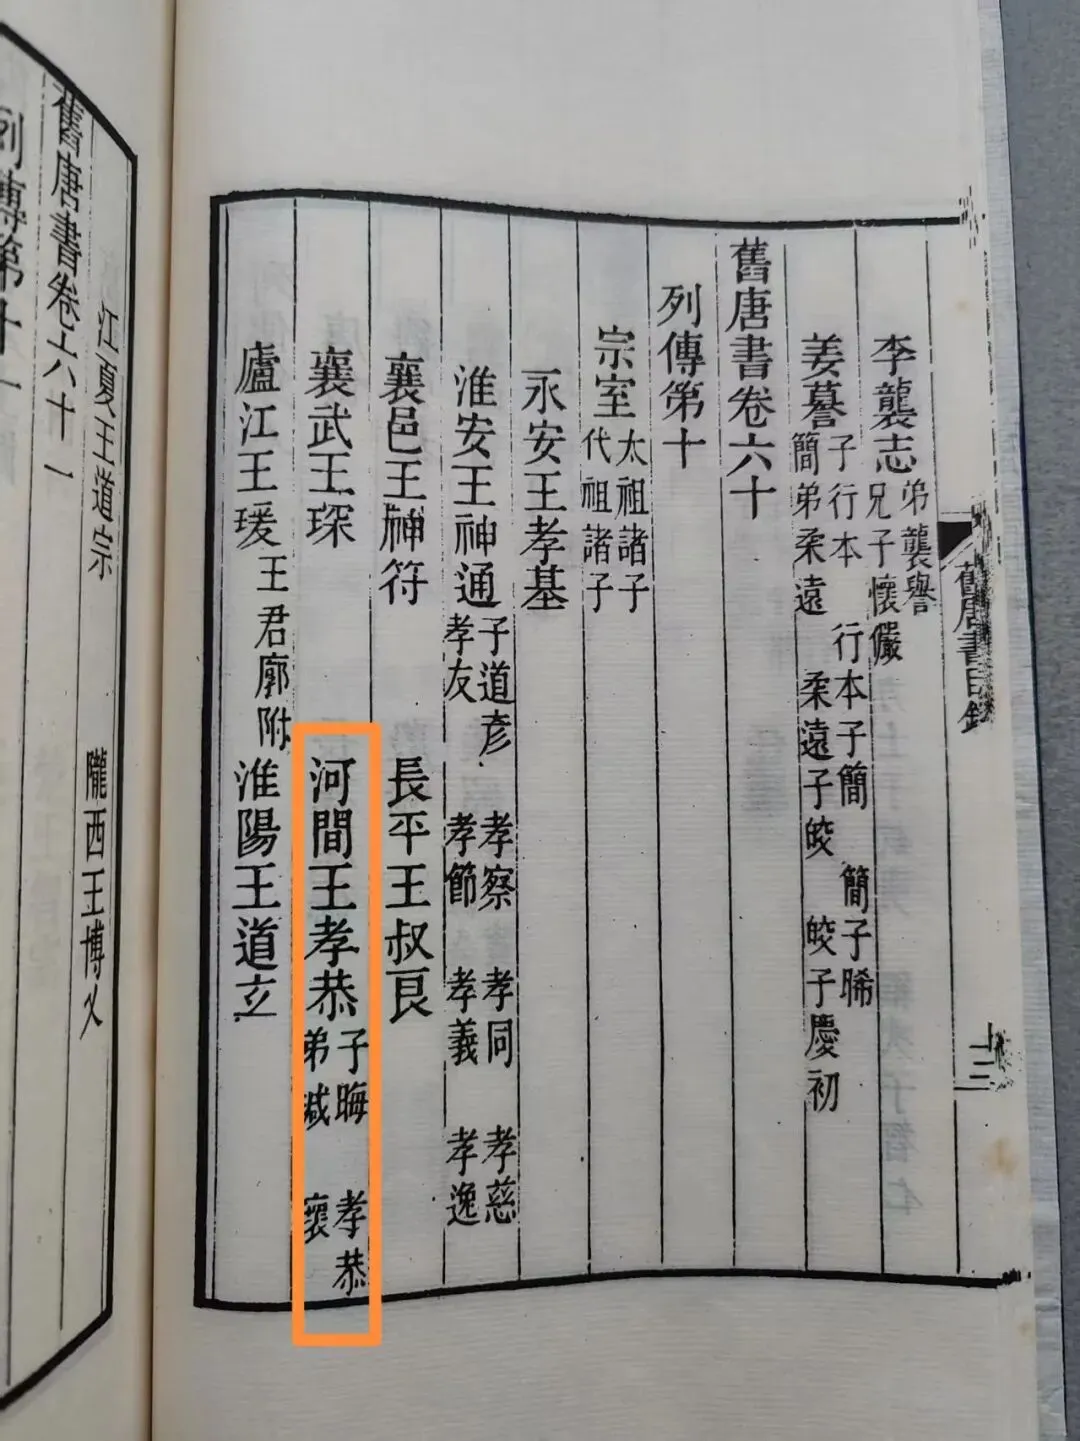 舊唐書目錄
李襲志 弟襲譽 兄子懷儼
姜謩 子行本 行本子簡 簡子晞
簡弟柔遠 柔遠子皎 皎子慶初
舊唐書卷六十
列傳第十
宗室 太祖諸子 代祖諸子
永安王孝基
淮安王神通 子道彥 孝察 孝同 孝慈
孝友 孝節 孝義 孝逸
襄邑王神符 長平王叔良
襄武王琛 河間王孝恭 子晦 孝恭
弟瑊 瓌
廬江王瑗 王君廓附 淮陽王道玄
江夏王道宗 隴西王博乂
舊唐書卷六十一
列傳第十一